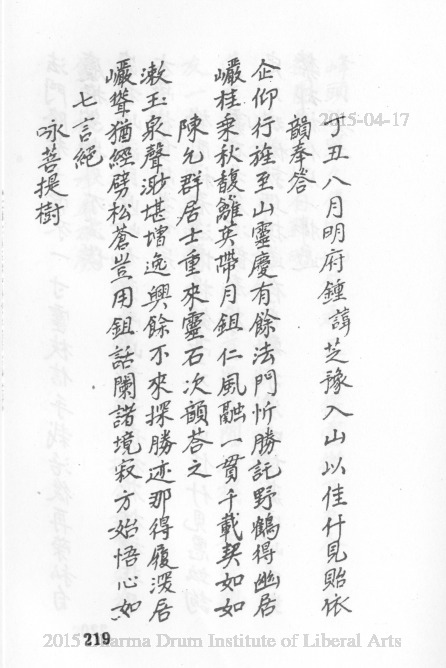 丁丑八月明府鍾諱芝豫入山以佳什見貽依
韻奉答
企仰行旌至山靈慶有餘法門忻勝託野鶴得幽居
巖桂秉秋馥離英帶月鉏仁風融一貫千載契如如
陳允群居士重來靈石次韻荅之
漱玉泉聲渺堪增逸興餘不來探勝迹那得履深居
巖聳猶經劈松蒼豈用鉏話闌諸境寂方始悟心如
七言絕
咏菩提樹
219
2015-04-17
2015 Dharma Drum Institute of Liberal Arts